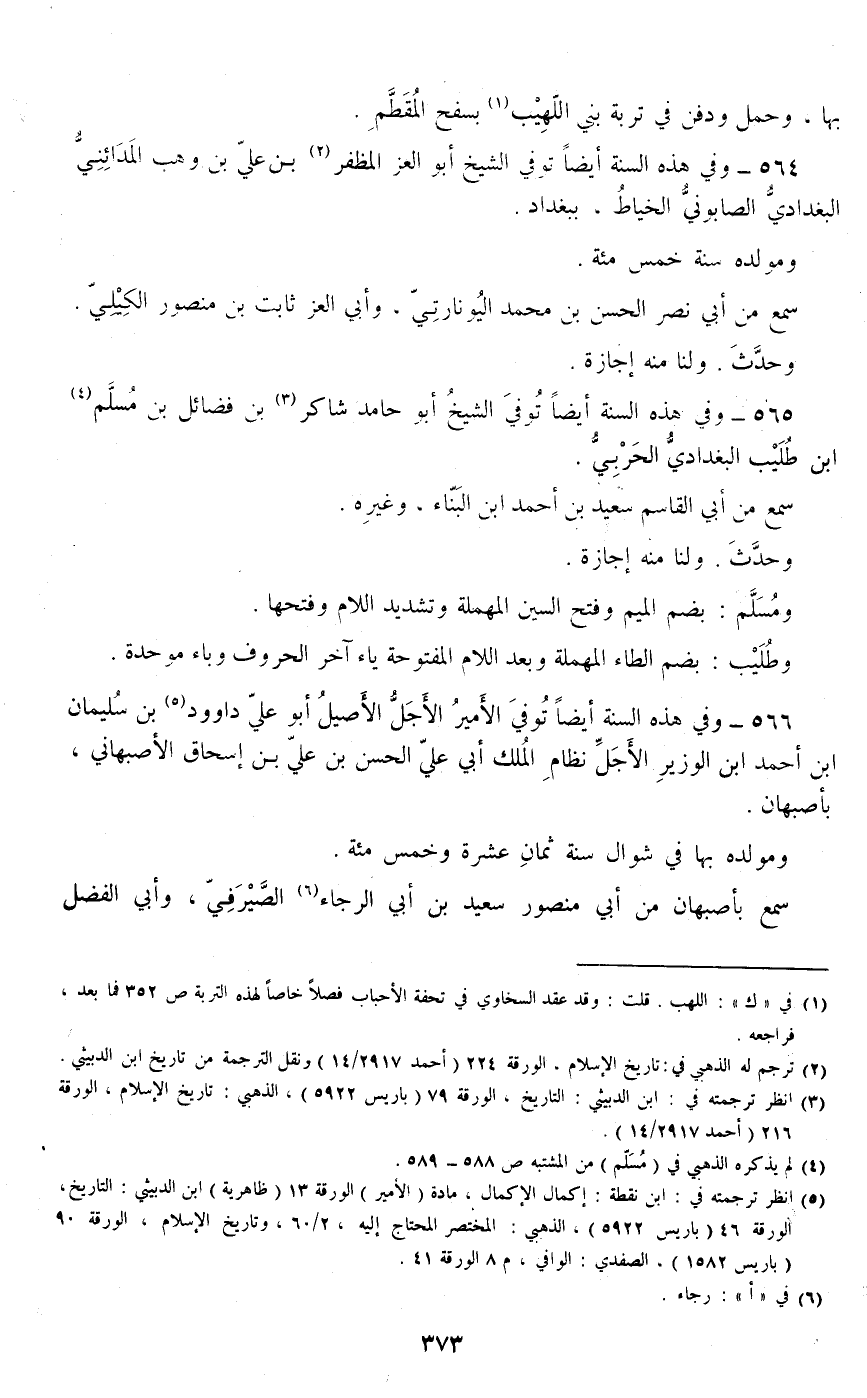 بها ، وحمل ودفن في تربة بني اللّهِيْب(١) بسفح المُقَطَّمِ .
٥٦٤ ــ وفي هذه السنة أيضاً توفي الشيخ أبو العز المظفر(٢) بـن عليّ بن وهب المَدَائِنِـيُّ
البغداديُّ الصابونيُّ الخياطُ ، ببغداد .
ومولده سنة خمس مئة .
سمع من أبي نصر الحسن بن محمد اليُونارتِـيّ ، وأبي العز ثابت بن منصور الكِيْلِـيّ .
وحدَّثَ . ولنا منه إجازة .
٥٦٥ ــ وفي هذه السنة أيضاً تُوفيَ الشيخُ أبو حامد شاكر(٣) بن فضائل بن مُسلَّم(٤)
ابن طُلَيْب البغداديُّ الحَرْبِـيُّ .
سمع من أبي القاسم سعيد بن أحمد ابن البَنّاء ، وغيرِه .
وحدَّثَ . ولنا منه إجازة .
ومُسَلَّم : بضم الميم وفتح السين المهملة وتشديد اللام وفتحها .
وطُلَيْب : بضم الطاء المهملة وبعد اللام المفتوحة ياء آخر الحروف وباء موحدة .
٥٦٦ ــ وفي هذه السنة أيضاً تُوفيَ الأميرُ الأَجَلُّ الأَصيلُ أبو عليّ داوود(٥) بن سُليمان
ابن أحمد ابن الوزيرِ الأَجَلِّ نظامِ المُلك أبي عليّ الحسن بن عليّ بـن إسحاق الأصبهاني ،
بأصبهان .
ومولده بها في شوال سنة ثمانِ عشرة وخمس مئة .
سمع بأصبهان من أبي منصور سعيد بن أبي الرجاء(٦) الصَّيْرَفِـيّ ، وأبي الفضل
(١) في « ك » : اللهب . قلت : وقد عقد السخاوي في تحفة الأحباب فصلاً خاصاً لهذه التربة ص ٣٥٢ فما بعد ،
فراجعه .
(٢) ترجم له الذهبي في : تاريخ الإسلام ، الورقة ٢٢٤ ( أحمد ١٤/٢٩١٧ ) ونقل الترجمة من تاريخ ابن الدبيثي .
(٣) انظر ترجمته في : ابن الدبيثي : التاريخ ، الورقة ٧٩ ( باريس ٥٩٢٢ ) ، الذهبي : تاريخ الإسلام ، الورقة
٢١٦ ( أحمد ١٤/٢٩١٧ ) .
(٤) لم يذكره الذهبي في ( مُسَلّم ) من المشتبه ص ٥٨٨ ــ ٥٨٩ .
(٥) انظر ترجمته في : ابن نقطة : إكمال الإكمال ، مادة ( الأمير ) الورقة ١٣ ( ظاهرية ) ابن الدبيثي : التاريخ ،
الورقة ٤٦ ( باريس ٥٩٢٢ ) ، الذهبي : المختصر المحتاج إليه ، ٦٠/٢ ، وتاريخ الإسلام ، الورقة ٩٠
( باريس ١٥٨٢ ) ، الصفدي : الوافي ، م ٨ الورقة ٤١ .
(٦) في « أ » : رجاء .
٣٧٣